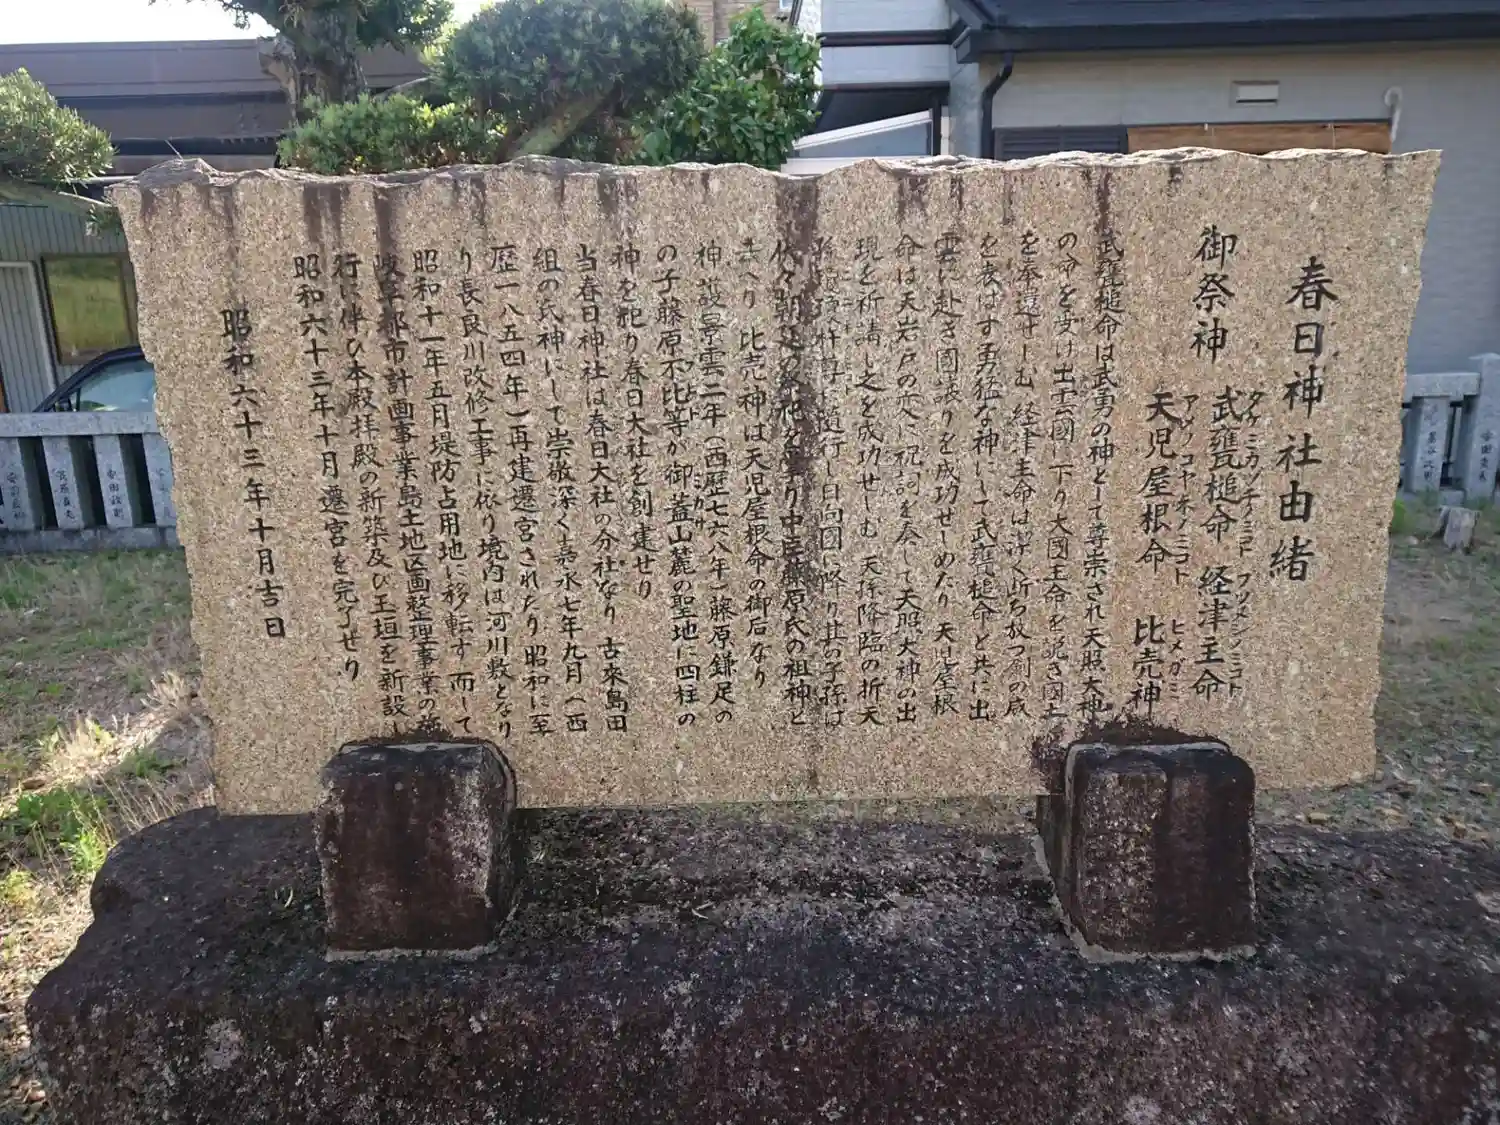 春日神社由緒
御祭神
タケミカツチノミコト フツヌシノミコト
武甕槌命 経津主命
アメノコヤネノミコト ヒメガミ
天児屋根命 比売神
武甕槌命は武勇の神として尊崇され天照大神
の命を受け出雲国に下り大国主命を説き國土
を奉還せしむ 経津主命は潔く断ち放つ剣の威
を表はす勇猛な神にして武甕槌命と共に出
雲に赴き國譲りを成功せしめたり 天児屋根
命は天岩戸の変に祝詞を奏して天照大神の出
現を祈請し之を成功せしむ 天孫降臨の折天
随行し日向国に降り其の子孫は
代々朝廷の祭祀を掌り中臣藤原氏の祖神と
比売神は天児屋根命の御后なり
神護景雲二年(西歴七六八年)藤原鎌足の
の子藤原不比等が御蓋山麓の聖地に四柱の
神を祀り春日大社を創建せり
当春日神社は春日大社の分社なり 古来島田
組の氏神にして崇敬深く嘉永七年九月(西
歴一八五四年)再建遷宮されたり 昭和に至
り長良川改修工事に依り境内は河川敷となり
昭和十一年五月堤防占用地に移転す 而して
岐阜都市計画事業島土地区画整理事業の施
行に伴ひ本殿拝殿の新築及び玉垣を新設し
昭和六十三年十月遷宮を完了せり
昭和六十三年十月吉日